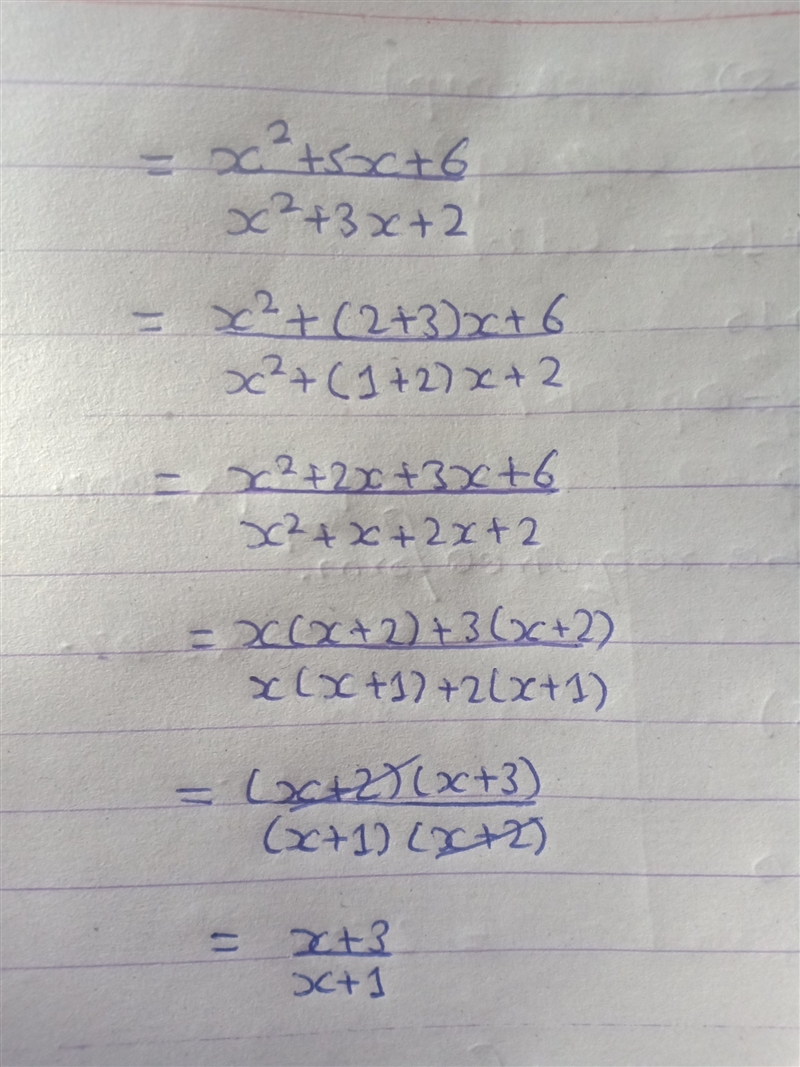 = x²+5x+6
x²+3x+2
= x²+(2+3)x+6
x²+(1+2)x+2
= x²+2x+3x+6
x²+x+2x+2
= x(x+2)+3(x+2)
x(x+1)+2(x+1)
= (x+2)(x+3)
(x+1)(x+2)
= x+3
x+1